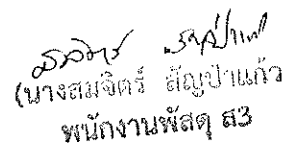 (นางสมจิตร์ สัญป่าแก้ว
พนักงานพัสดุ ส3